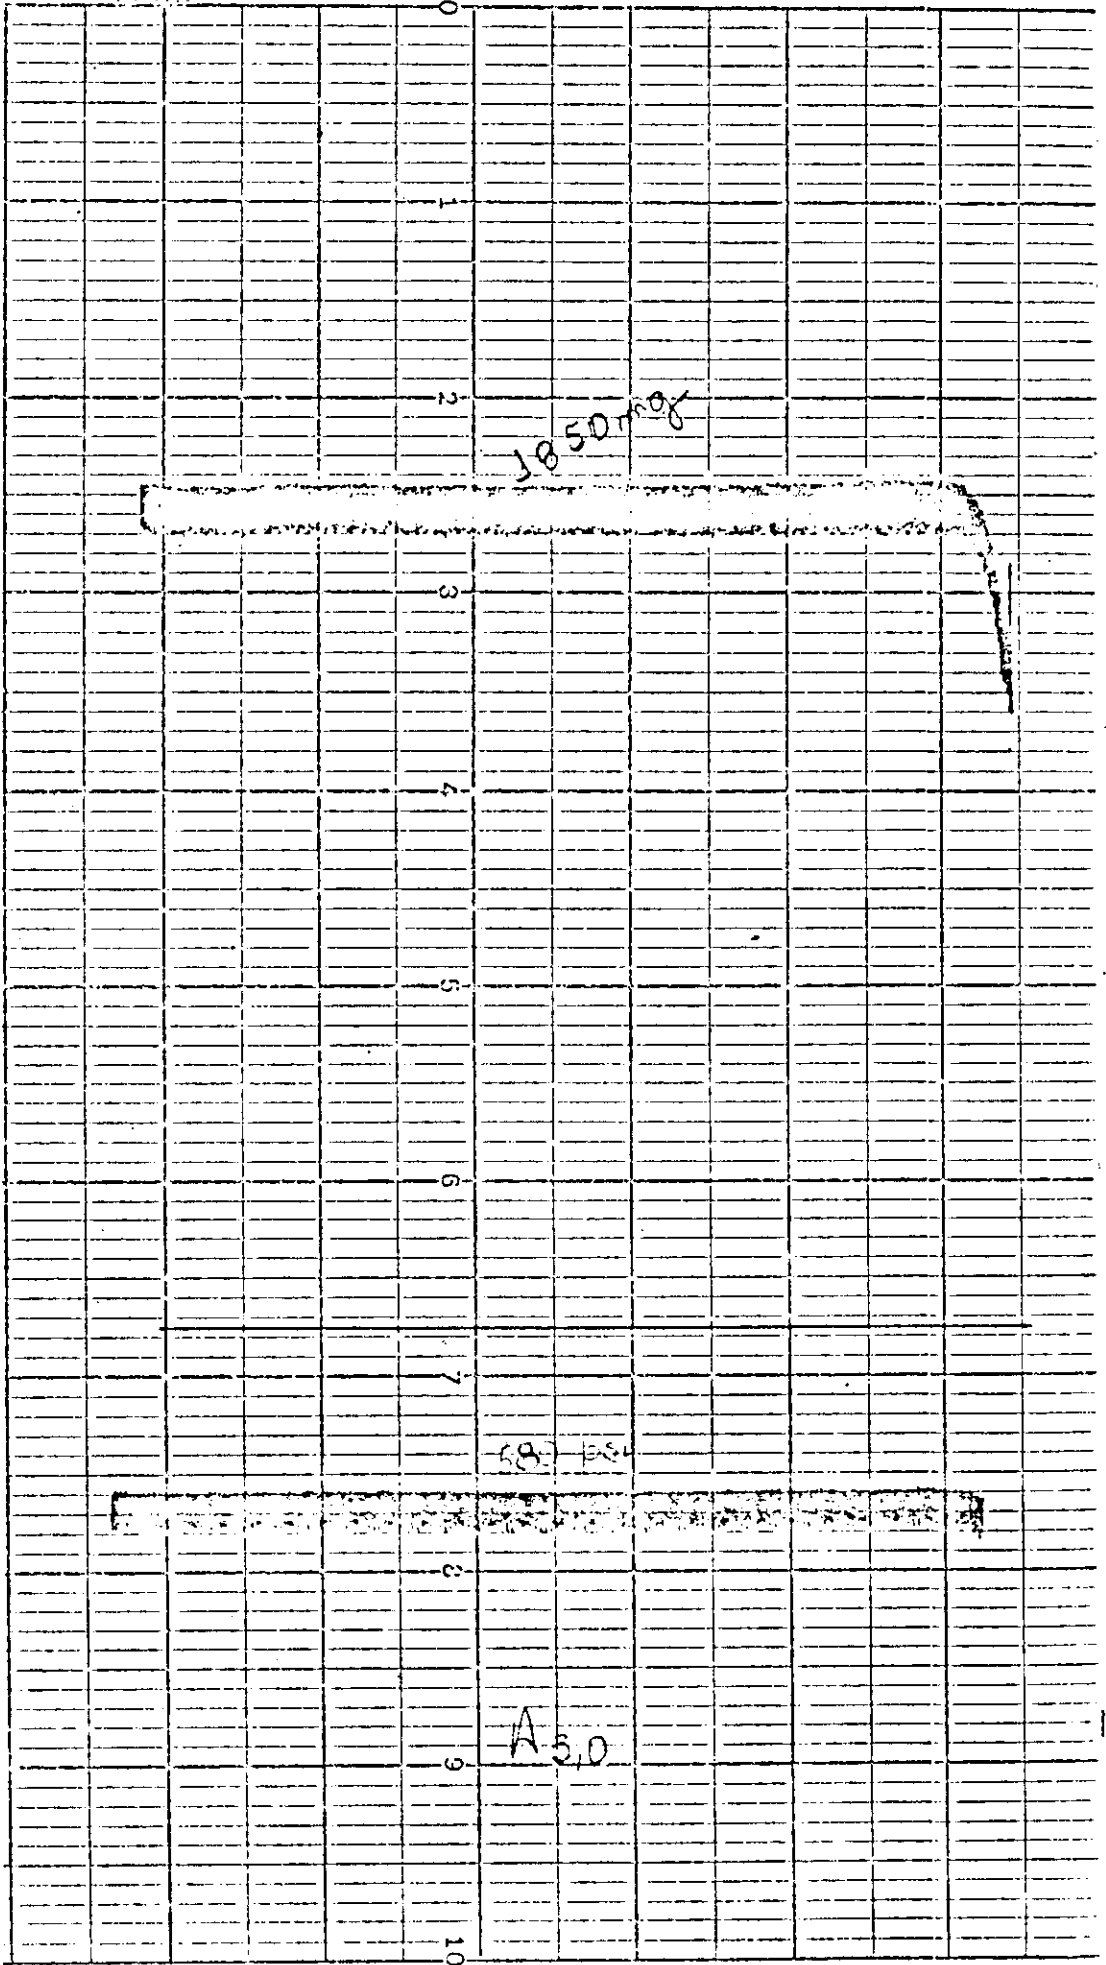 0
1
2
1850 mg
3
4
5
6
7
8
A 5,0
9
10